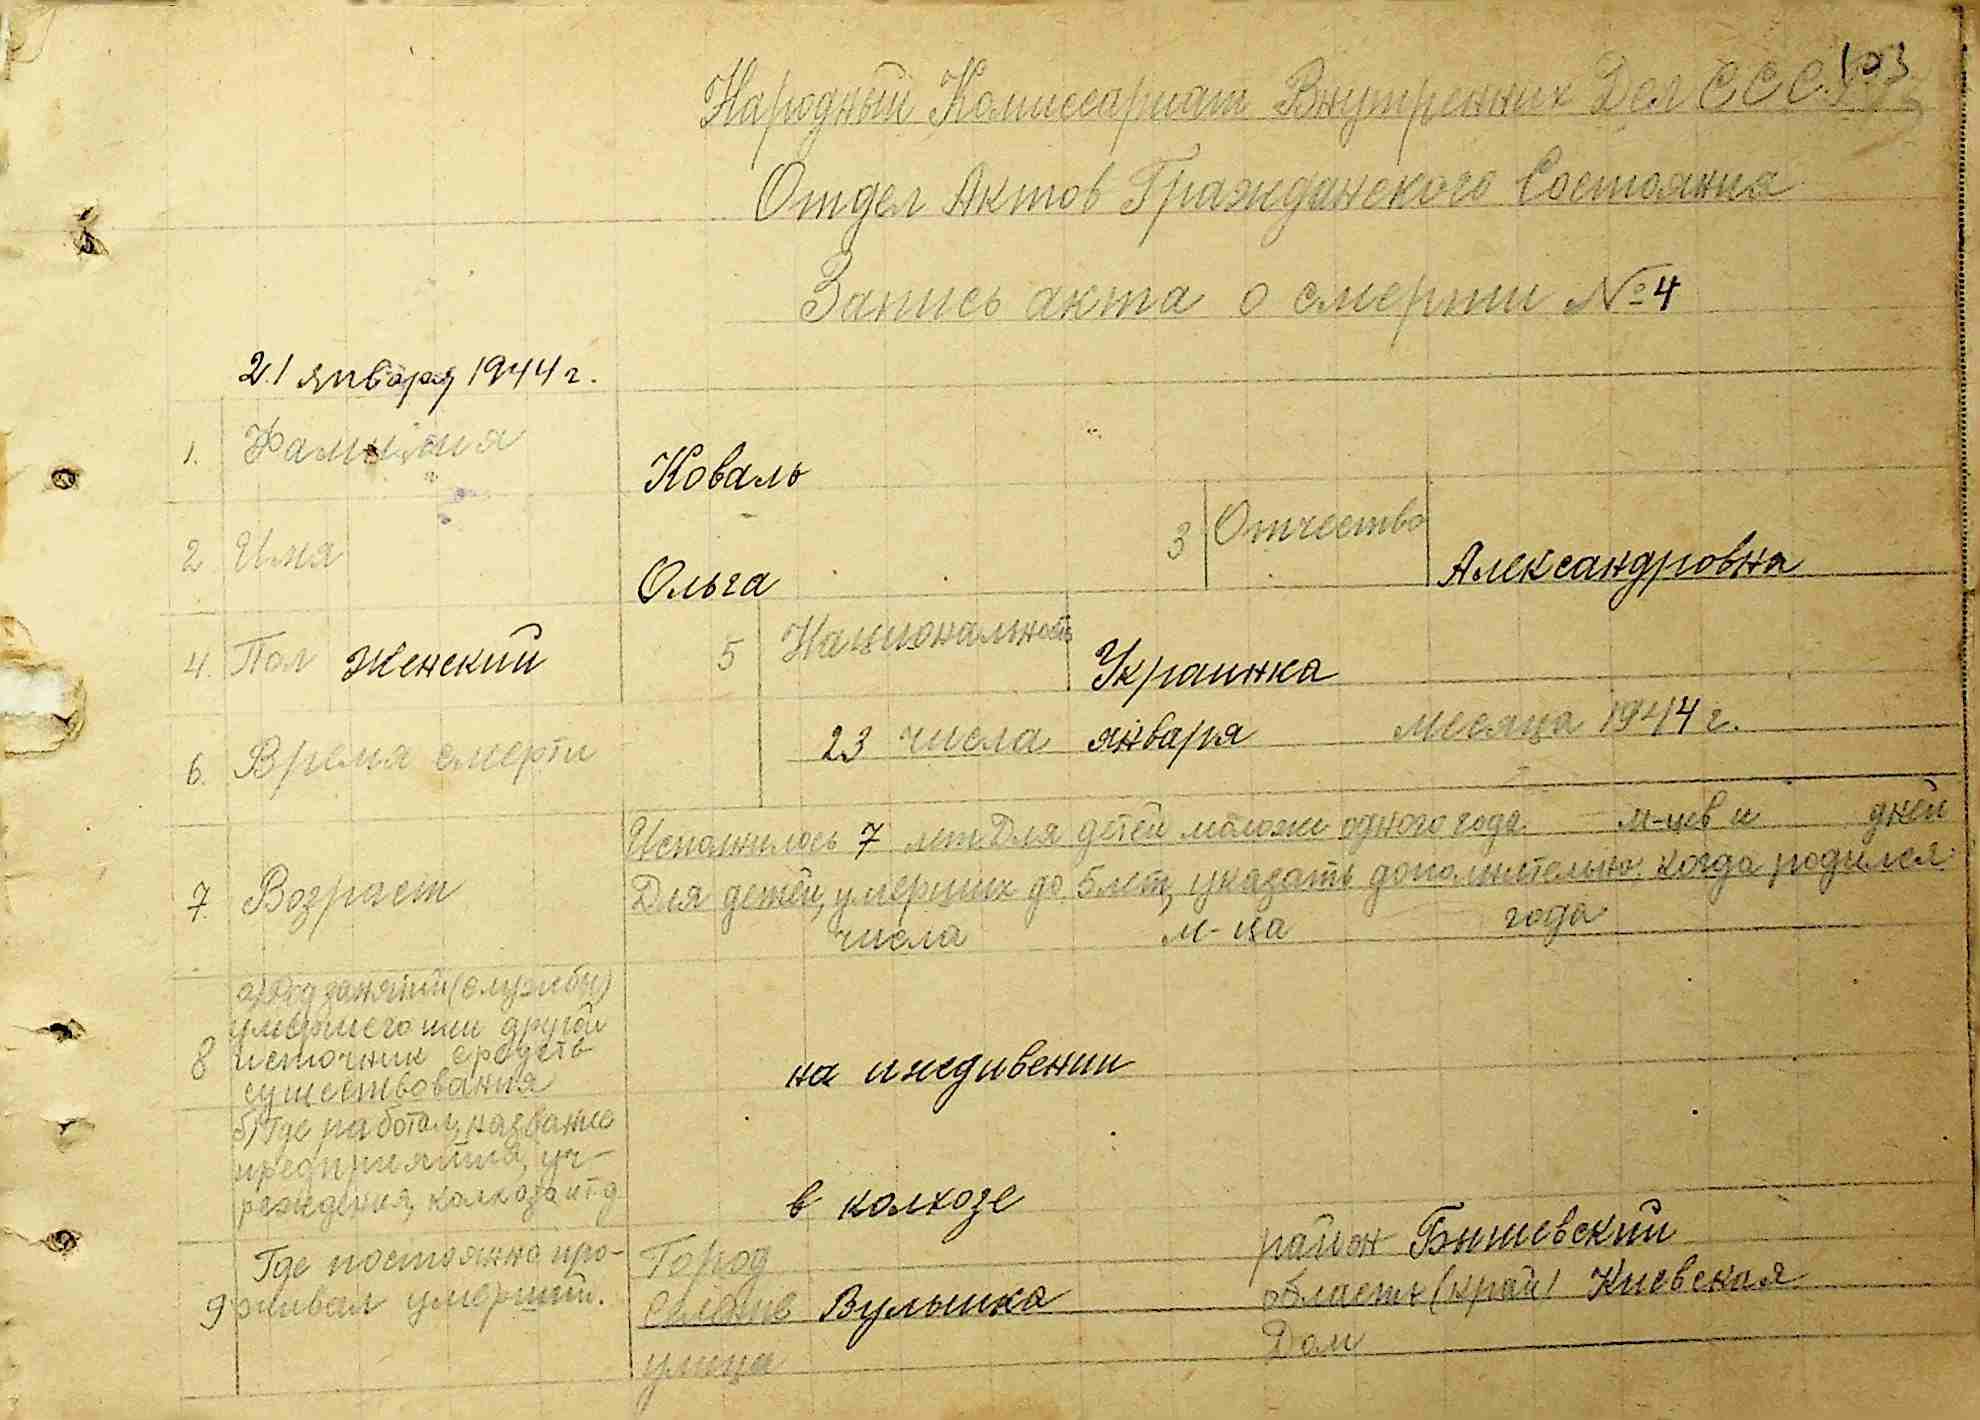 103
Народный Комиссариат Внутренних Дел СССР
Отдел Актов Гражданского Состояния
Запись акта о смерти №4
21 января 1944 г.
1. Фамилия Коваль
2 Имя Ольга 3 Отчество Александровна
4. Пол Женский 5 Национальность Украинка
6. Время смерти 23 числа января месяца 1944 г.
Исполнилось 7 лет Для детей моложе одного года м-цев и дней
7. Возраст Для детей, умерших до 5 лет, указать дополнительно: когда родился
числа м-ца года
а) Род занятий (службы)
умершего или другой
8 источник средств
существования
на иждивении
б) Где работал, название
предприятия, уч-
реждения, колхоза и т д
в колхозе
Где постоянно про-
9 живал умерший.
Город район Бышевский
Селение Вулышка область (край) Киевская
улица Дом